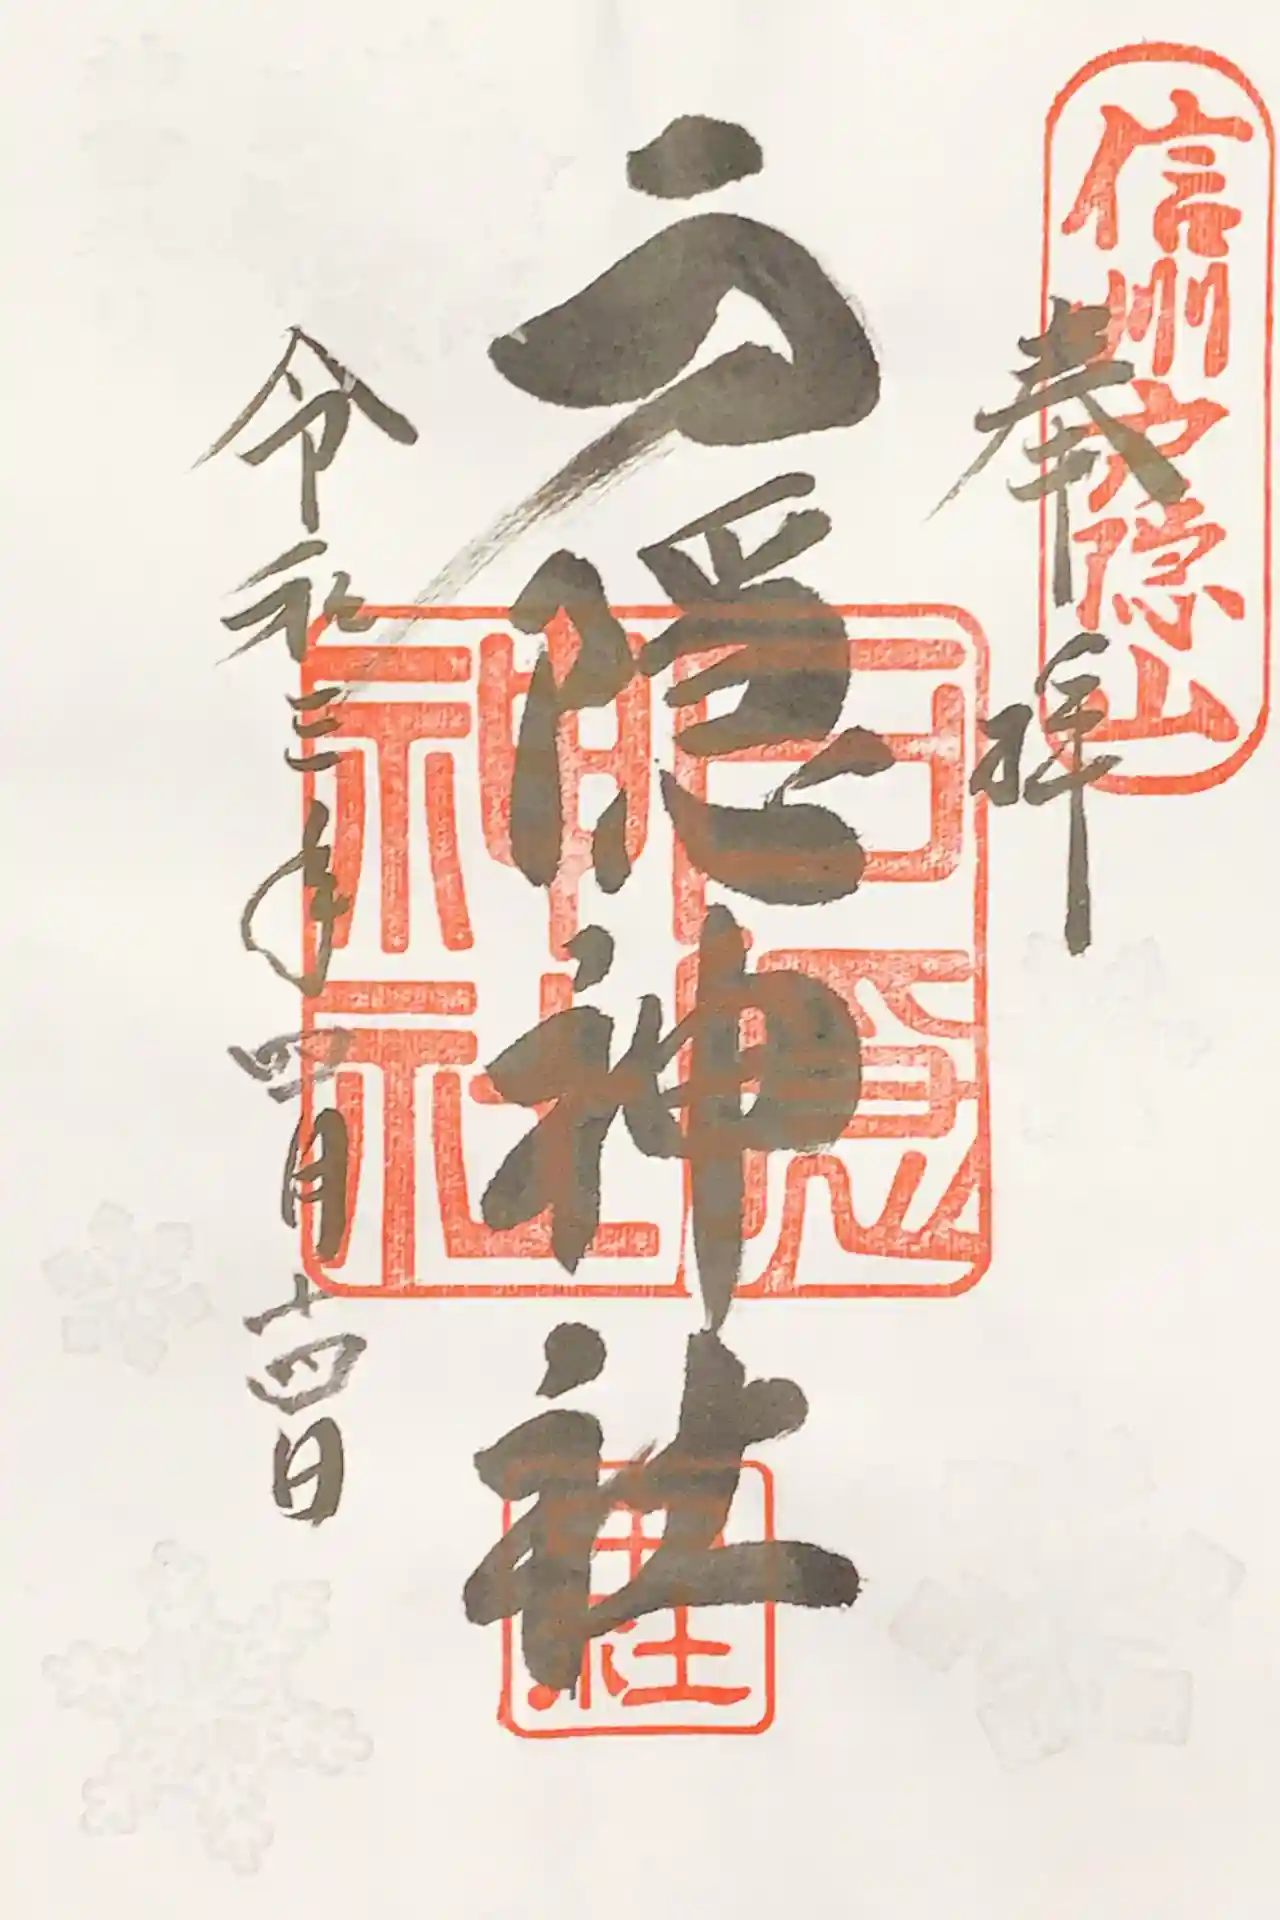 信州戸隠山
奉拝
戸隠神社
戸隠神社
令和三年四月十四日